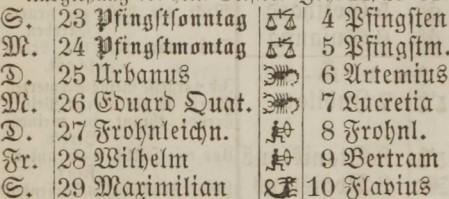 S. 23 Pfingstsonntag ♎ 4 Pfingsten
M. 24 Pfingstmontag ♎ 5 Pfingstm.
D. 25 Urbanus ♏ 6 Artemius
M. 26 Eduard Quat. ♏ 7 Lucretia
D. 27 Frohnleichn. ♐ 8 Frohnl.
Fr. 28 Wilhelm ♐ 9 Bertram
S. 29 Maximilian ♑ 10 Flavius